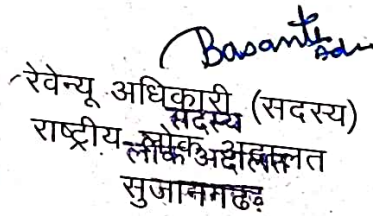 Basanti
रेवेन्यू अधिकारी (सदस्य)
सदस्य
राष्ट्रीय लोक अदालत
लोक अदालत
सुजानगढ़